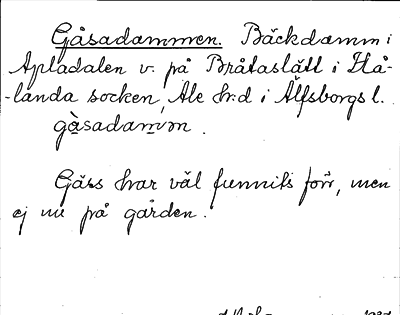 Gåsadammen. Bäckdamm i
Apladalen v. på Bråtaslätt i Hå-
-landa socken, Ale h:d i Älfsborgs l.
gàsadamm.
Gäss har väl funnits förr, men
ej nu på gården.